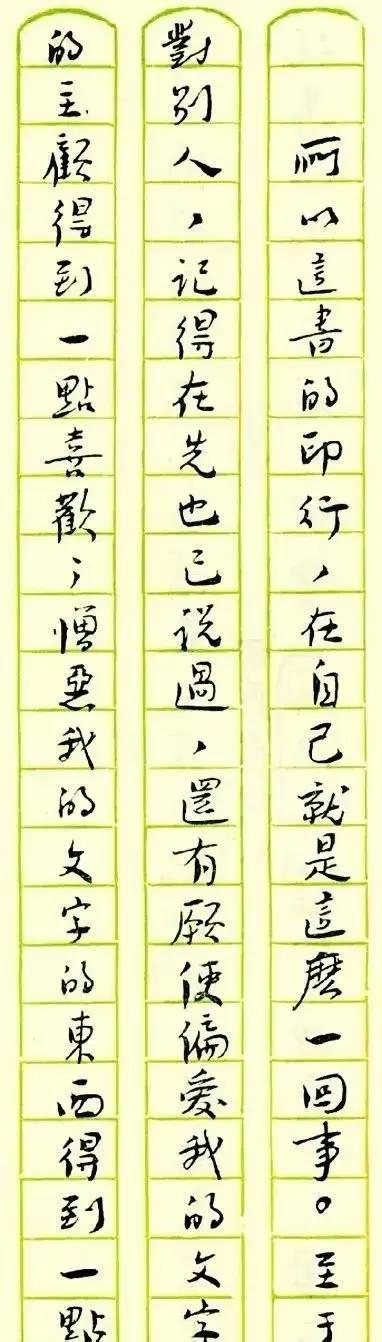 所以這書的印行，在自己就是這麽一回事。至于
對别人，記得在先也已説過，還有願使偏愛我的文字
的主顧得到一點喜歡；憎惡我的文字的東西得到一點